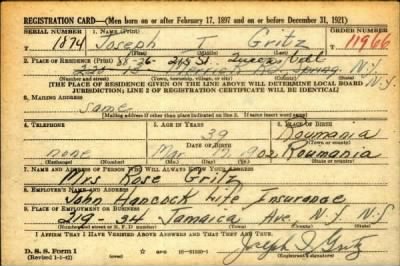 REGISTRATION CARD—(Men born on or after February 17, 1897 and on or before December 31, 1921)
SERIAL NUMBER 1. NAME (Print) ORDER NUMBER
1874 Joseph I Gritz 11966
88-26 215 St. Queens Vill
2. PLACE OF RESIDENCE (Print)
N.Y
(Number and street) (Town, township, village, or city) (County) (State)
[THE PLACE OF RESIDENCE GIVEN ON THE LINE ABOVE WILL DETERMINE LOCAL BOARD JURISDICTION; LINE 2 OF REGISTRATION CERTIFICATE WILL BE IDENTICAL]
3. MAILING ADDRESS
same
[Mailing address if other than place indicated on line 2. If same insert word same]
4. TELEPHONE 5. AGE IN YEARS 6. PLACE OF BIRTH
39 Roumania
DATE OF BIRTH (Town or county)
none Mar 1902 Roumania
(Exchange) (Number) (Mo.) (Day) (Yr.) (State or country)
7. NAME AND ADDRESS OF PERSON WHO WILL ALWAYS KNOW YOUR ADDRESS
Mrs Rose Gritz
8. EMPLOYER'S NAME AND ADDRESS
John Hancock Life Insurance
9. PLACE OF EMPLOYMENT OR BUSINESS
219-34 Jamaica Ave, N.Y. N.Y
(Number and street or R. F. D. number) (Town) (County) (State)
I AFFIRM THAT I HAVE VERIFIED ABOVE ANSWERS AND THAT THEY ARE TRUE.
D. S. S. Form 1
(Revised 1-1-42)
Joseph I. Gritz